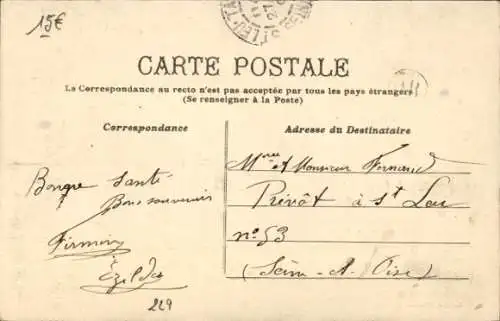 15€
ST LEU-TA
27
CARTE POSTALE
La Correspondance au recto n'est pas acceptée par tous les pays étrangers
(Se renseigner à la Poste)
Correspondance
Adresse du Destinataire
Bonne santé
Bons souvenirs
Firmin
Ezilda
229
et Monsieur Fernand
Prévôt à St Leu
n° 53
(Seine-et-Oise)